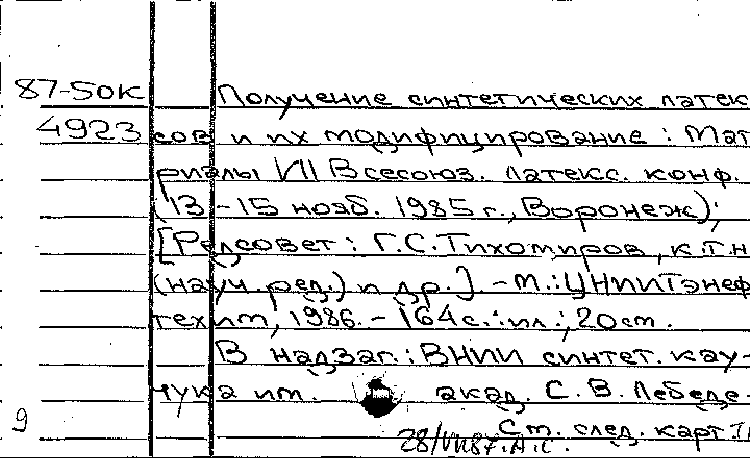 87-50к Получение синтетических латек
4923 сов и их модифицирование : Мат
риалы VII Всесоюз. латекс. конф.
(13-15 нояб. 1985 г., Воронеж);
[Редсовет: Г.С. Тихомиров, к.т.н
(науч. ред.) и др.]. - М.: ЦНИИТэнеф
техим, 1986. - 164 с.: ил.; 20 см.
В надзаг.: ВНИИ синтет. кау-
чука им. акад. С. В. Лебеде-
9 См. след. карт.